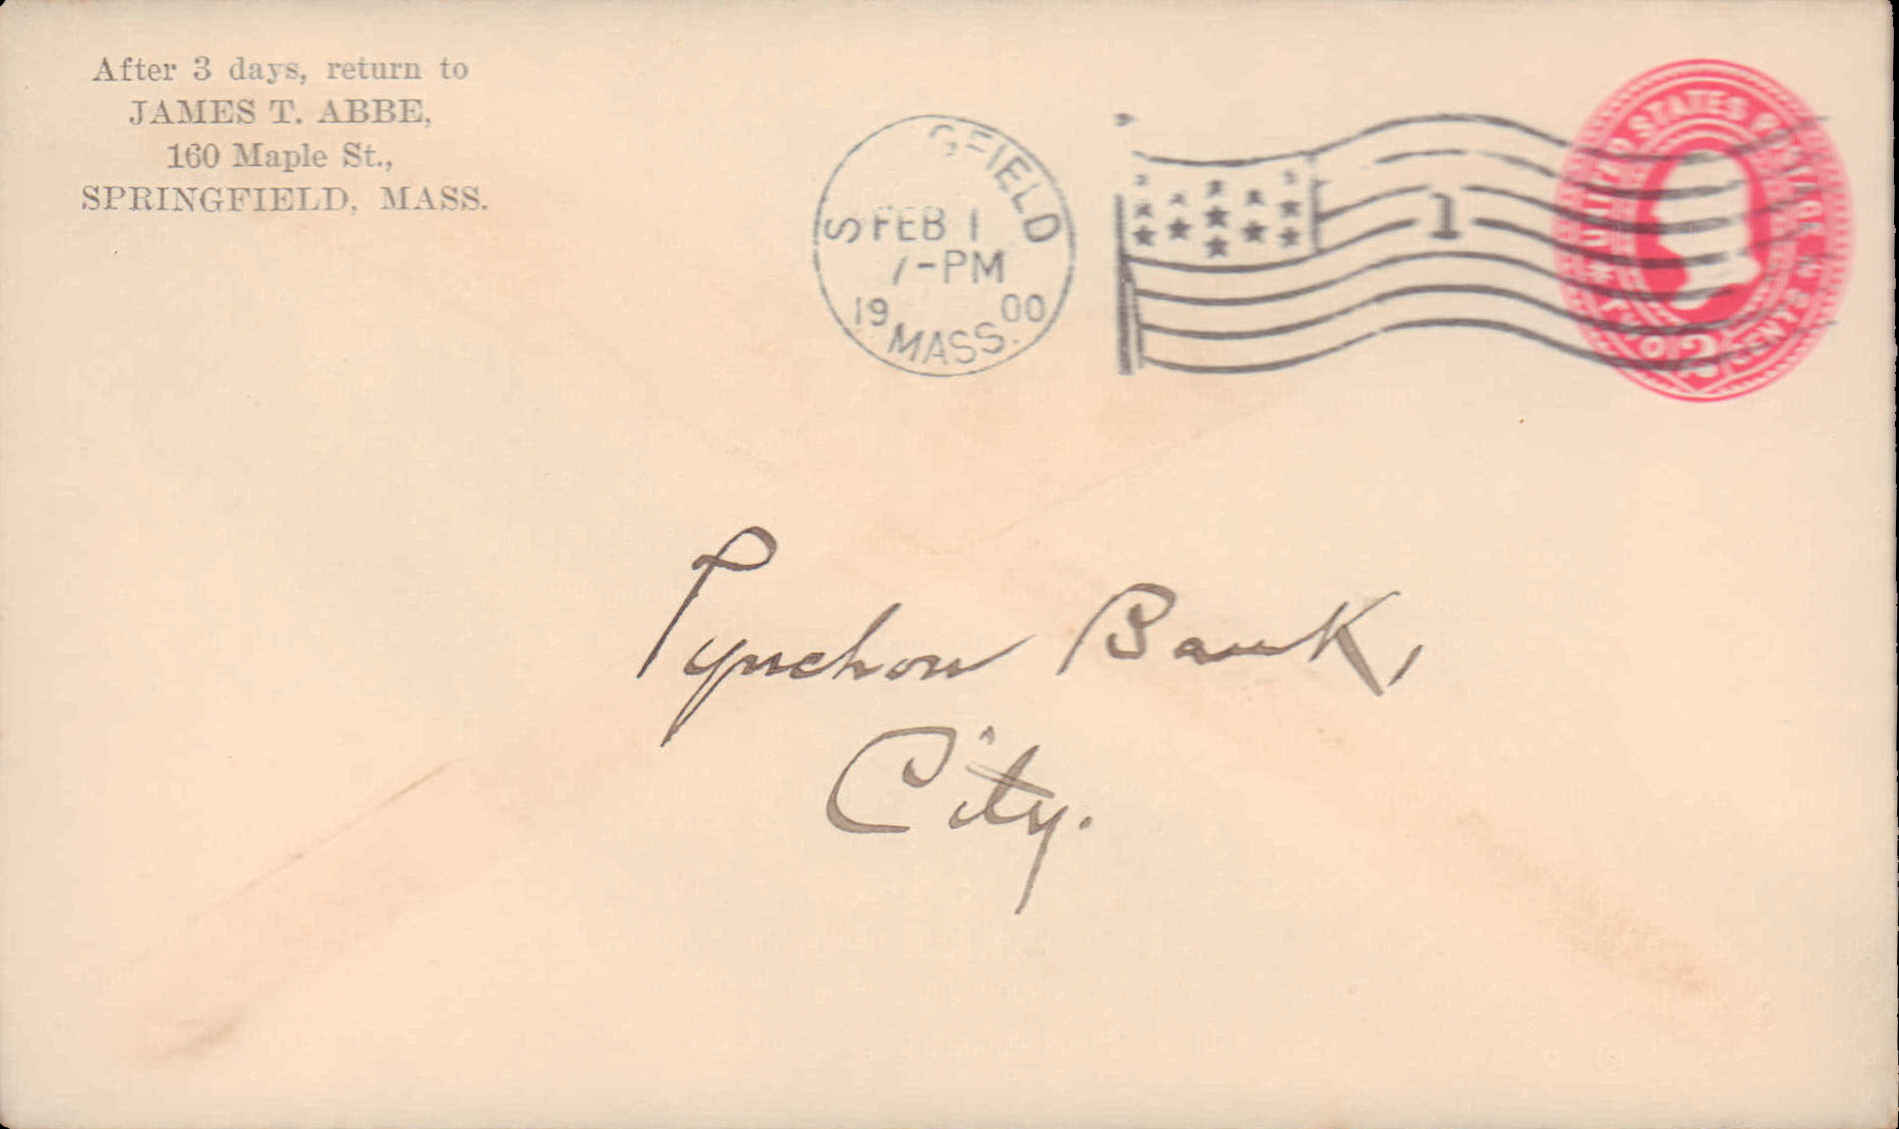 After 3 days, return to
JAMES T. ABBE,
160 Maple St.,
SPRINGFIELD, MASS.
S GFIELD
FEB 1
7-PM
19 00
MASS.
1
UNITED STATES POSTAGE
TWO 2 CENTS
Pynchon Bank,
City.